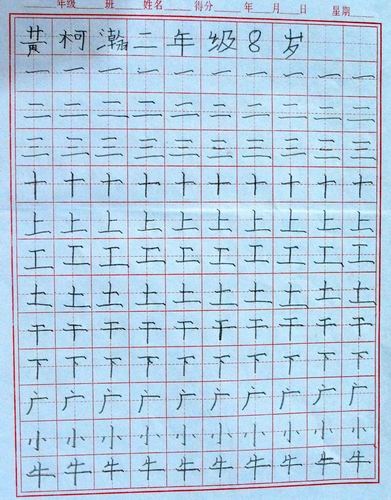 年级 班 姓名 得分 年 月 日 星期
黄柯瀚二年级8岁
一一一一一一一一一一
二二二二二二二二二二
三三三三三三三三三三
十十十十十十十十十十
上上上上上上上上上上
工工工工工工工工工工
土土土土土土土土土土
干干干干干干干干干干
下下下下下下下下下下
广广广广广广广广广广
小小小小小小小小小小
牛牛牛牛牛牛牛牛牛牛